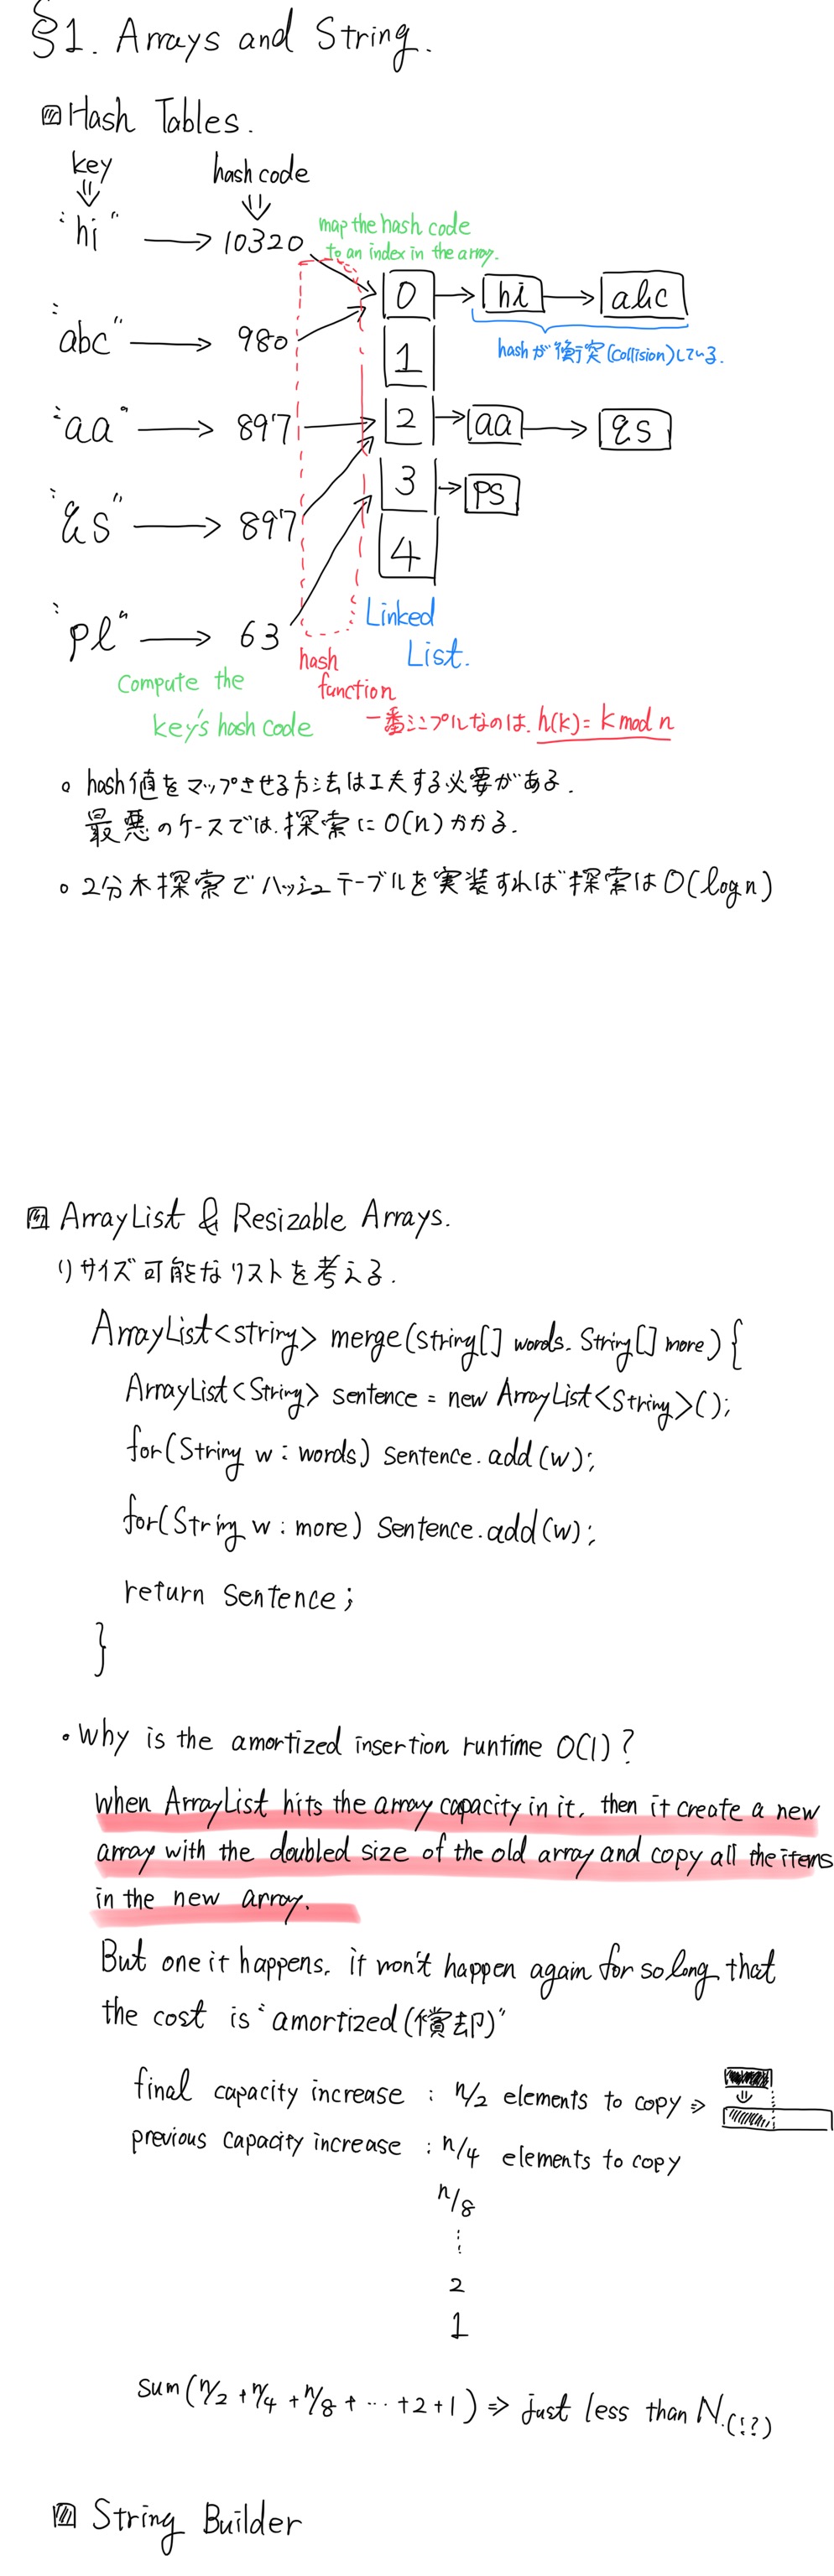 §1. Arrays and String.
Hash Tables.
key
hash code
"hi" → 10320
map the hash code
to an index in the array.
0 → hi → abc
"abc" → 980
hashが衝突(collision)している.
1
"aa" → 897
2 → aa → qs
3 → ps
"qs" → 897
4
"pl" → 63
Linked
List.
Compute the
key's hash code
hash
function
一番シンプルなのは. h(k)= k mod n
○ hash値をマップさせる方法は工夫する必要がある.
最悪のケースでは.探索にO(n)かかる.
○ 2分木探索でハッシュテーブルを実装すれば探索はO(log n)
ArrayList & Resizable Arrays.
リサイズ可能なリストを考える.
ArrayList<string> merge(string[] words. String[] more) {
ArrayList<String> sentence = new ArrayList<String>();
for(String w : words) sentence.add(w);
for(String w : more) sentence.add(w);
return sentence;
}
• why is the amortized insertion runtime O(1)?
when ArrayList hits the array capacity in it, then it create a new
array with the doubled size of the old array and copy all the items
in the new array.
But one it happens, it won't happen again for so long that
the cost is "amortized(償却)"
final capacity increase : n/2 elements to copy ⇒
previous capacity increase : n/4 elements to copy
n/8
⋮
2
1
sum(n/2 + n/4 + n/8 + ... +2+1) ⇒ just less than N.(!?)
String Builder